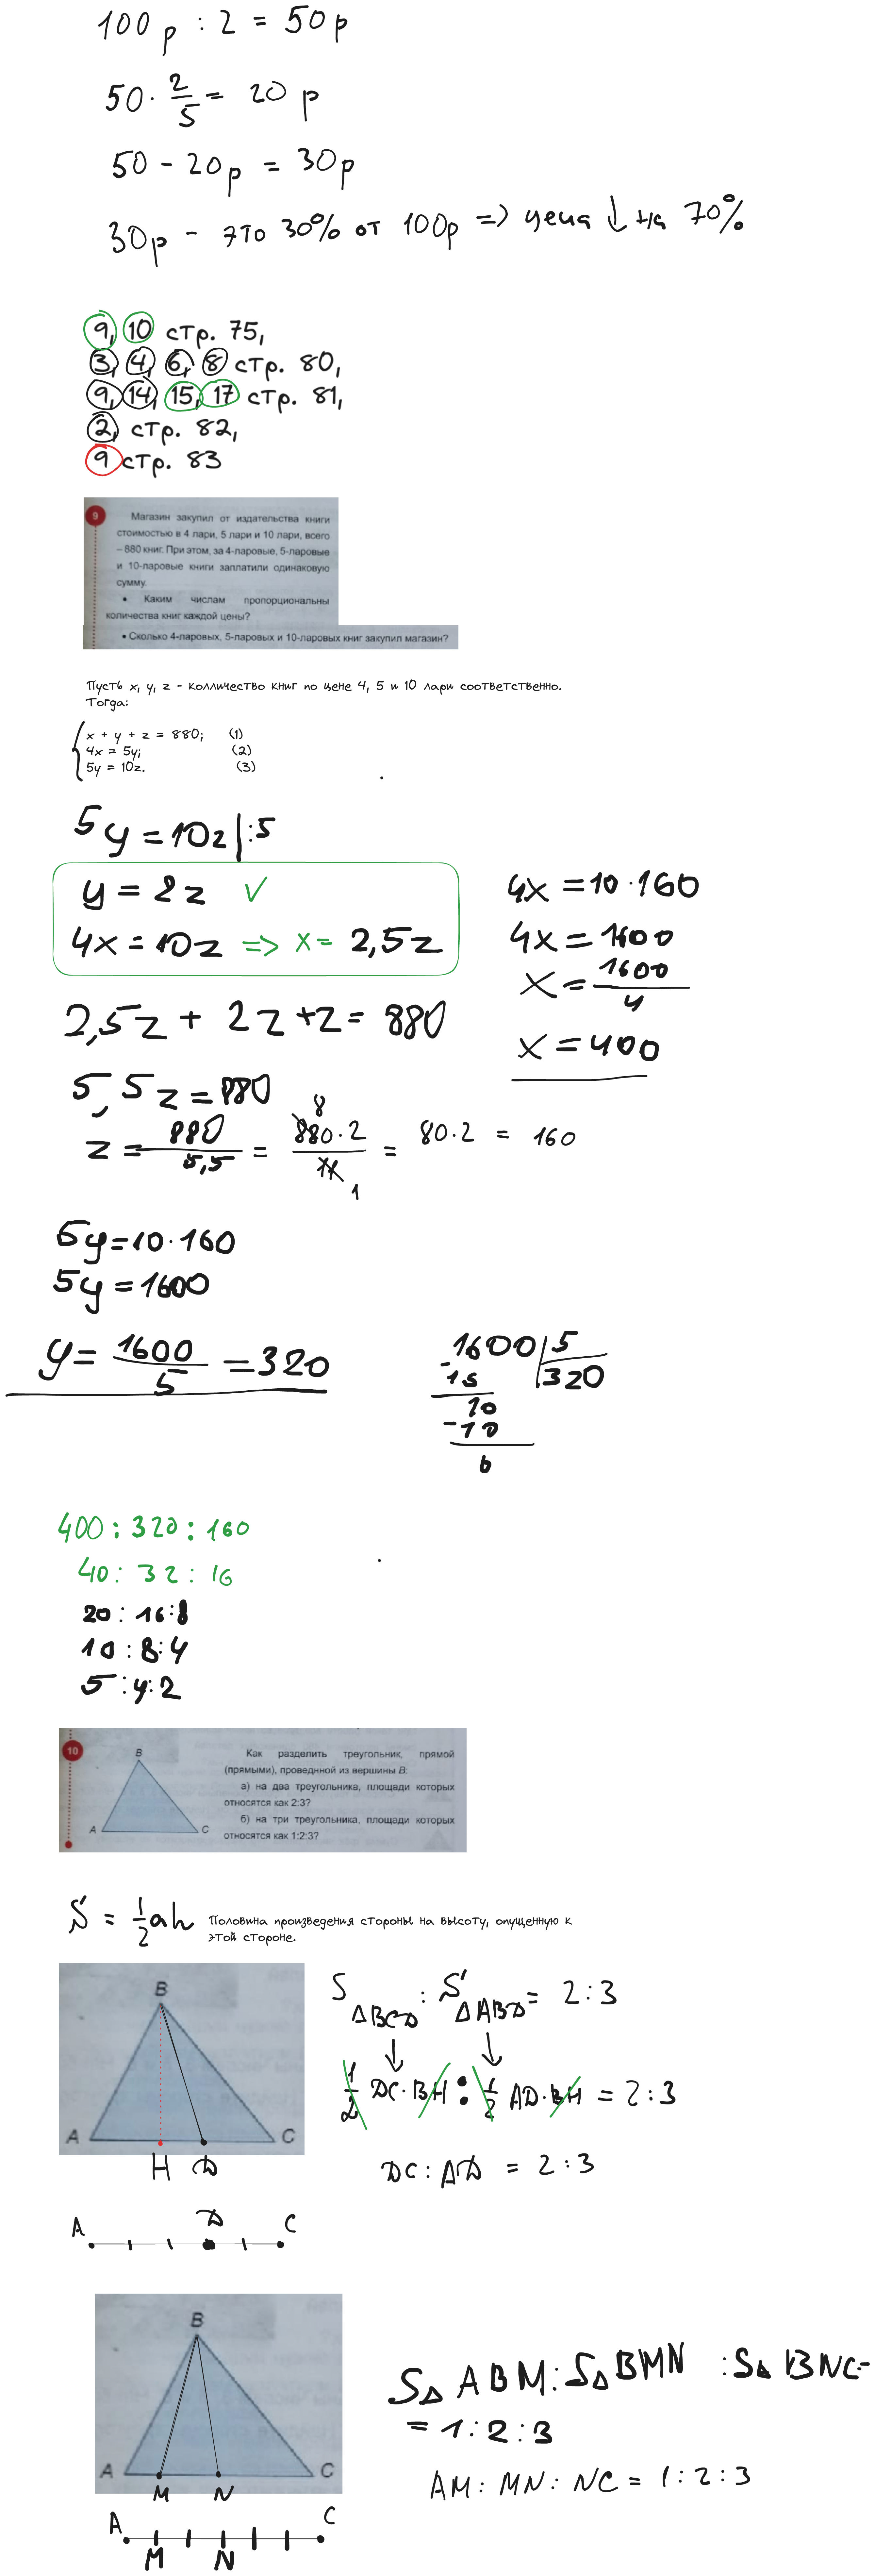 100р : 2 = 50р
50 · 2/5 = 20 р
50 - 20р = 30р
30р - это 30% от 100р => цена ↓ на 70%
9, 10 стр. 75,
3, 4, 6, 8 стр. 80,
9, 14, 15, 17 стр. 81,
2, стр. 82,
9 стр. 83
9
Магазин закупил от издательства книги
стоимостью в 4 лари, 5 лари и 10 лари, всего
– 880 книг. При этом, за 4-ларовые, 5-ларовые
и 10-ларовые книги заплатили одинаковую
сумму.
• Каким числам пропорциональны
количества книг каждой цены?
• Сколько 4-ларовых, 5-ларовых и 10-ларовых книг закупил магазин?
Пусть x, y, z - колличество книг по цене 4, 5 и 10 лари соответственно.
Тогда:
x + y + z = 880; (1)
4x = 5y; (2)
5y = 10z. (3)
5y = 10z |:5
y = 2z ✓
4x = 10z => x = 2,5z
4x = 10 · 160
4x = 1600
x = 1600/4
x = 400
2,5z + 2z + z = 880
5,5z = 880
z = 880/5,5 = 880·2/11 = 80·2 = 160
8
1
5y = 10 · 160
5y = 1600
y = 1600/5 = 320
1600 | 5
- 15 320
10
- 10
0
400 : 320 : 160
40 : 32 : 16
20 : 16 : 8
10 : 8 : 4
5 : 4 : 2
10
B
A C
Как разделить треугольник, прямой
(прямыми), проведнной из вершины B:
а) на два треугольника, площади которых
относятся как 2:3?
б) на три треугольника, площади которых
относятся как 1:2:3?
S = 1/2 ah
Половина произведения стороны на высоту, опущенную к
этой стороне.
B
A C
H D
S△BCD : S△ABD = 2 : 3
1/2 DC · BH : 1/2 AD · BH = 2 : 3
DC : AD = 2 : 3
A D C
B
A C
M N
S△ ABM : S△ BMN : S△ BNC =
= 1 : 2 : 3
AM : MN : NC = 1 : 2 : 3
A C
M N